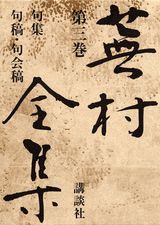 蕪村全集
第三巻
句集
句稿・句会稿
講談社